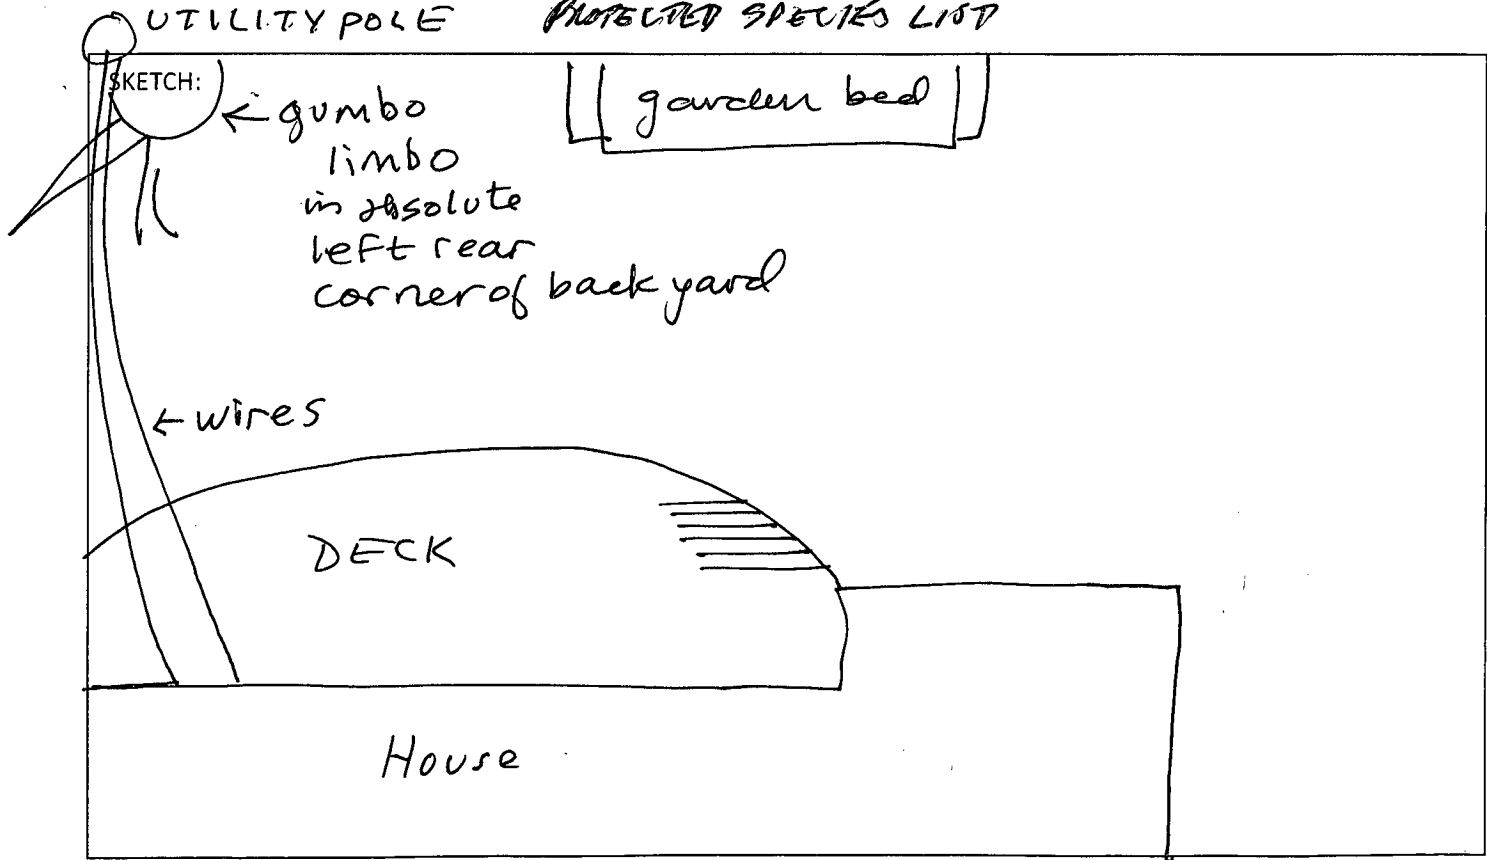 UTILITY POLE PROTECTED SPECIES LIST
SKETCH:
← gumbo
limbo
in absolute
left rear
corner of back yard
garden bed
← wires
DECK
House